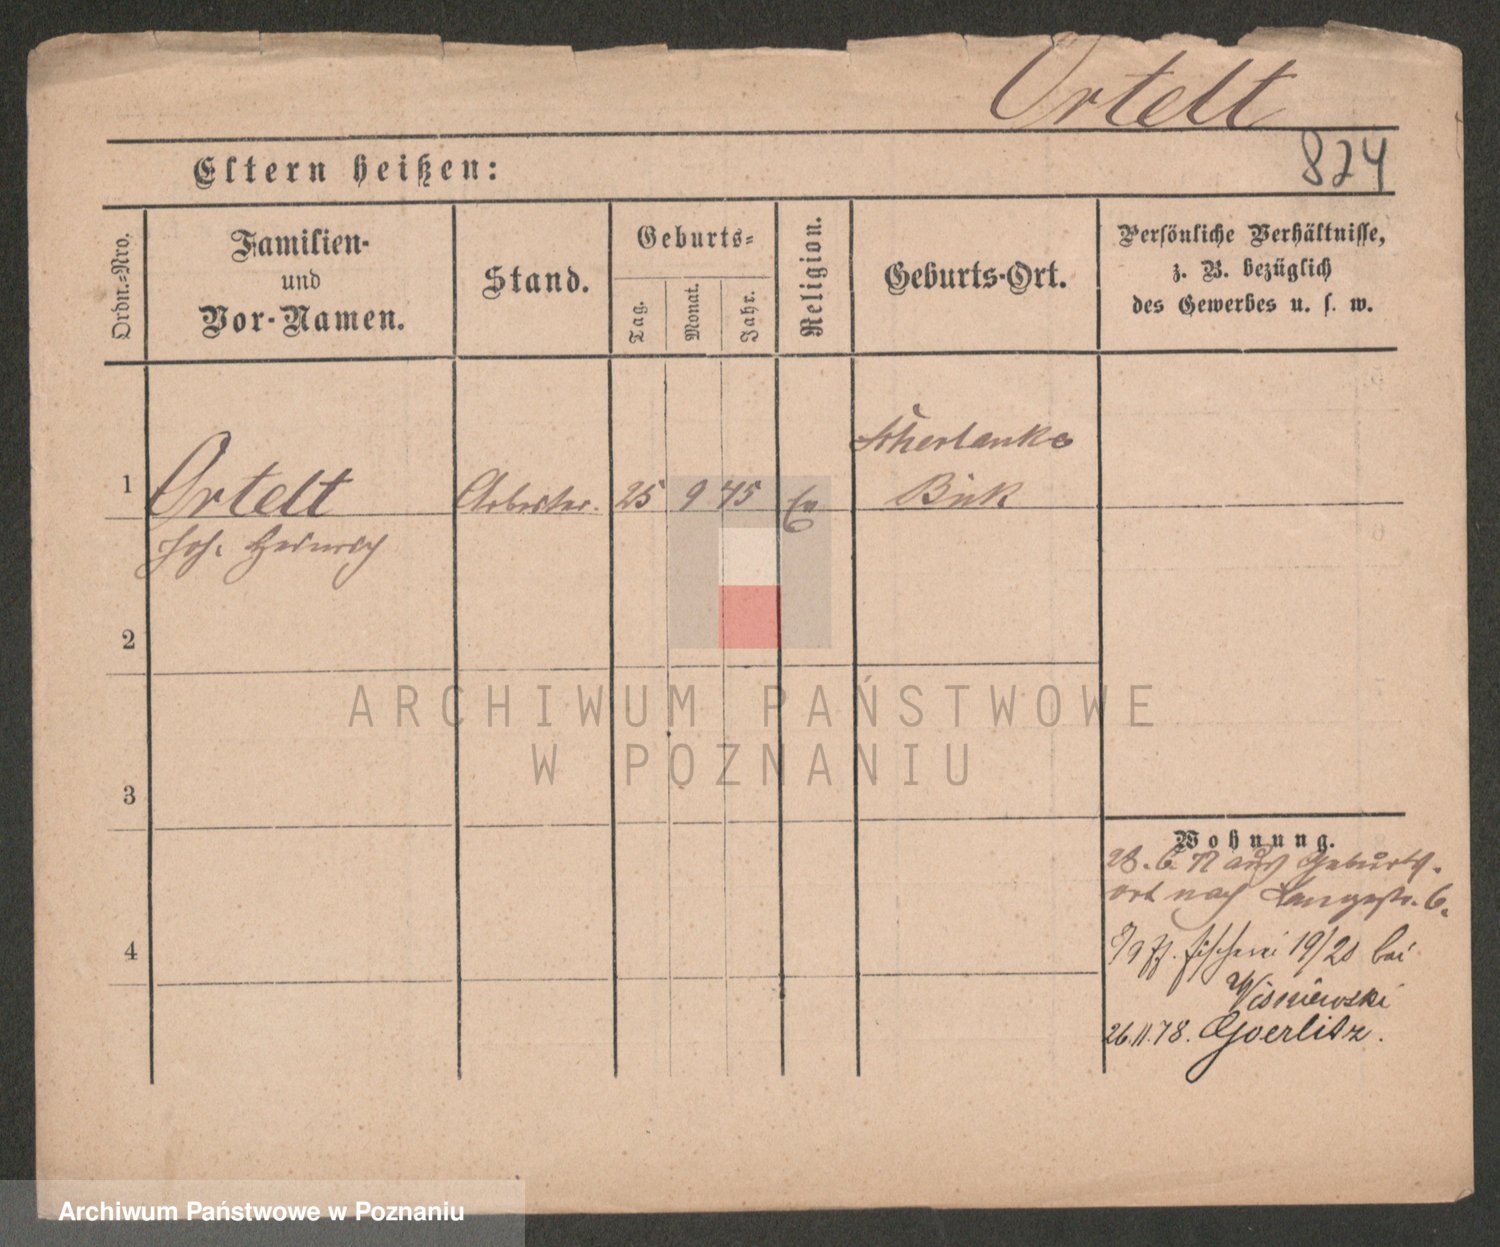 Ortelt
824
Eltern heißen:
Ordn.-Nro.
Familien-
und
Vor-Namen.
Stand.
Geburts-
Tag.
Monat.
Jahr.
Religion.
Geburts-Ort.
Persönliche Verhältnisse,
z. B. bezüglich
des Gewerbes u. s. w.
1
Ortelt
Joh. Heinrich
Arbeiter.
25
9
Ev
Scherlanke
Buk
2
3
4
Wohnung.
28. 6. aus Geburts-
ort nach Langestr. 6.
Fischerei 19/20 bei
Wisniewski
26.11.78. Goerlitz.
ARCHIWUM PAŃSTWOWE
W POZNANIU
Archiwum Państwowe w Poznaniu